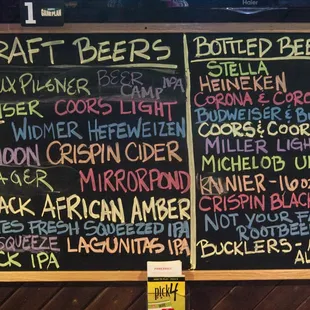 1
Haier
RAFT BEERS
UX PILSNER BEER CAMP IPA
ISER COORS LIGHT
WIDMER HEFEWEIZEN
OON CRISPIN CIDER
AGER MIRRORPOND
ACK AFRICAN AMBER
TES FRESH SQUEEZED IPA
SQUEEZE LAGUNITAS IPA
CK IPA
BOTTLED BEE
STELLA
HEINEKEN
CORONA & CORO
BUDWEISER & BU
COORS & COOR
MILLER LIGH
MICHELOB U
RAINIER - 16O
CRISPIN BLACK
NOT YOUR F
ROOTBEE
BUCKLERS -
AL
PICK 4